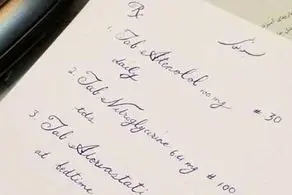 Rx
1. Tab Atenolol 100 mg # 30
daily
2. Tab Nitroglycerine 6.4 mg # 100
tds
3. Tab Atorvastati
at bedtime